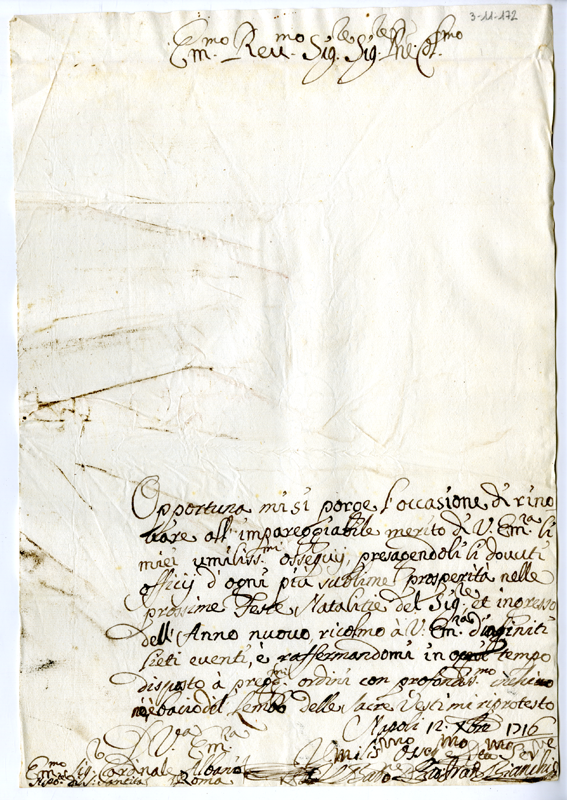 3-11-172
E.mo Rev.mo Sig.re Sig.re P.ne Col.mo
Opportuna mi si porge l'occasione di rino
vare all'impareggiabile merito di V. Em.za li
miei umiliss.mi ossequij, presagendoli li dovuti
officij d'ogni più sublime prosperità nelle
prossime Feste Natalitie del Sig.re et ingresso
dell'Anno nuovo, ricolmo à V. Em.za d'infiniti
lieti eventi, è raffermandomi in ogni tempo
disposto à preg.mi ordini con profondiss.mo
bacio del Lembo delle sacre Vesti mi riprotesto
Napoli 12 Xbre 1716
D. V.ra Em.za
Em.mo Sig. Cardinale Albani
Nipo. di S. Santità Roma